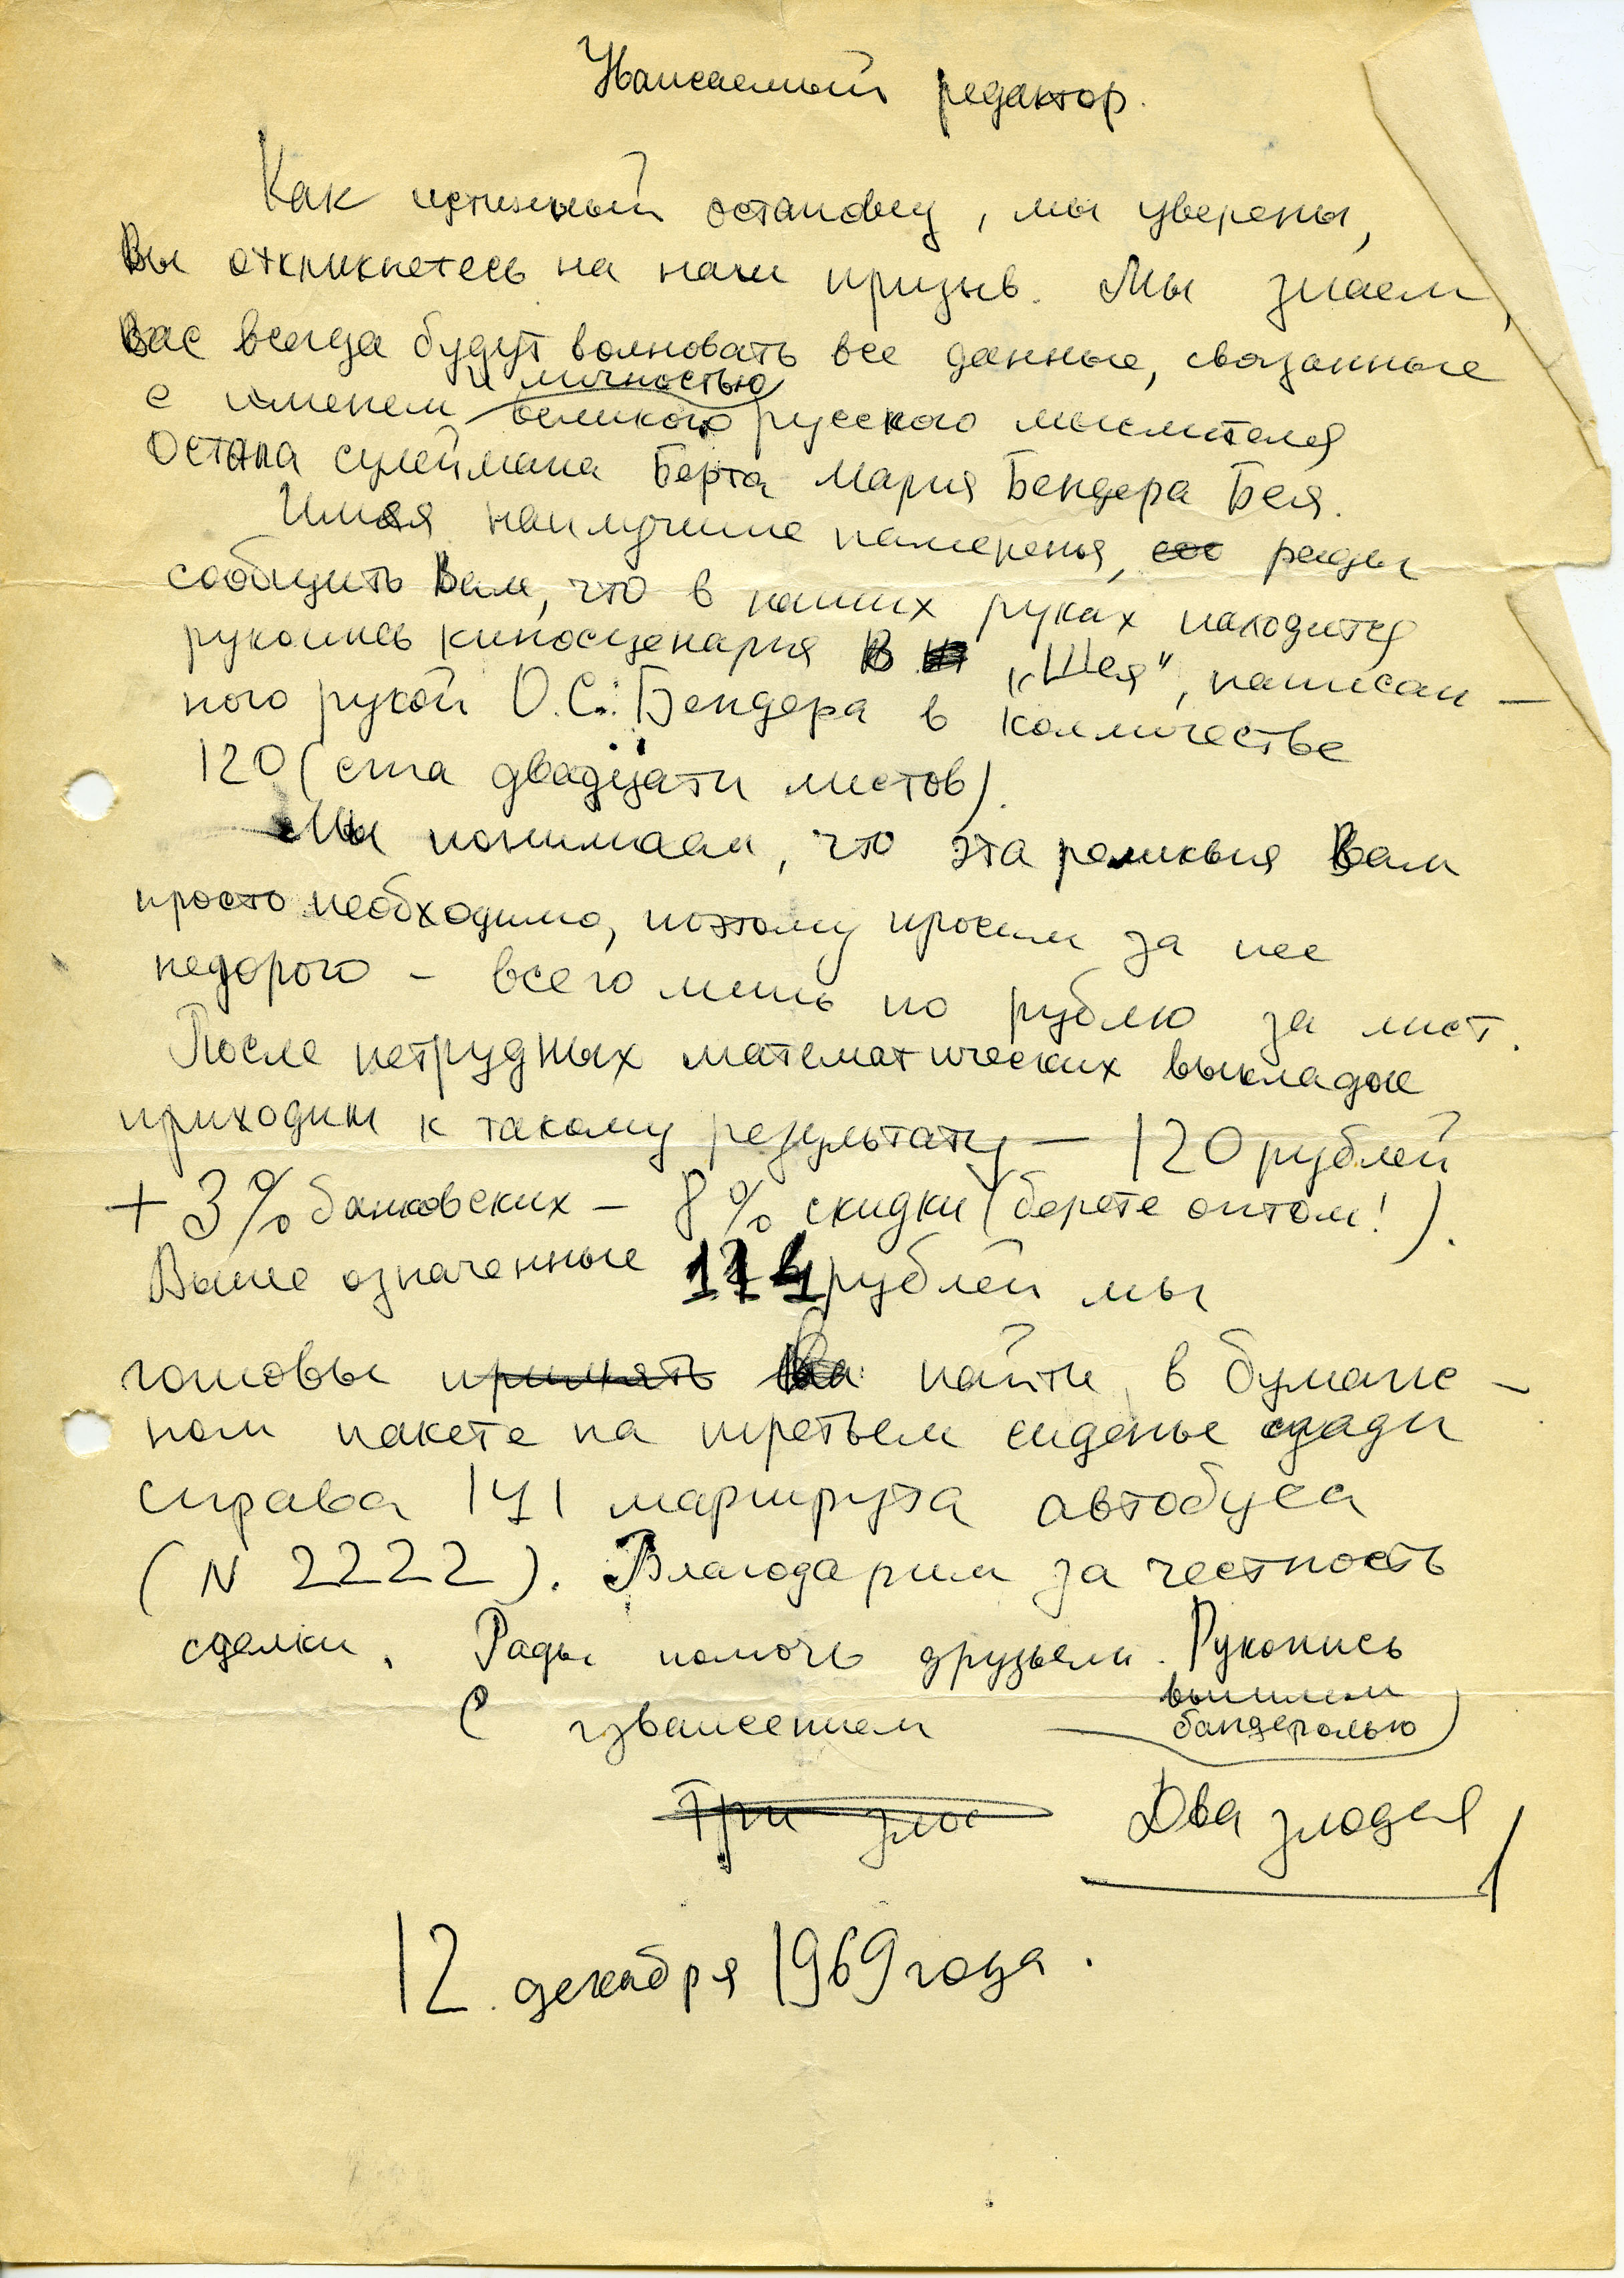 Уважаемый редактор.
Как истинный остаповец, мы уверены,
Вы откликнетесь на наш призыв. Мы знаем,
Вас всегда будут волновать все данные, связанные
с именем и личностью великого русского мыслителя
Остапа сулеймана Берта Мария Бендера Бея.
Имея наилучшие намеренья, рады
сообщить Вам, что в наших руках находится
рукопись киносценария В "Шея", написан-
ного рукой О.С. Бендера в колличестве
120 (ста двадцати листов).
Мы понимаем, что эта реликвия Вам
просто необходимо, поэтому просим за нее
недорого - всего лишь по рублю за лист.
После нетрудных математических выкладок
приходим к такому результату - 120 рублей
+ 3% банковских - 8% скидки (берете оптом!).
Выше означенные рублей мы
готовы принять найти в бумаж-
ном пакете на третьем сиденье сзади
справа маршрута автобуса
(N 2222). Благодарим за честность
сделки. Рады помочь друзьям. Рукопись
вышлем
С уважением бандеролью
Три злод Два злодея
12. декабря 1969 года.